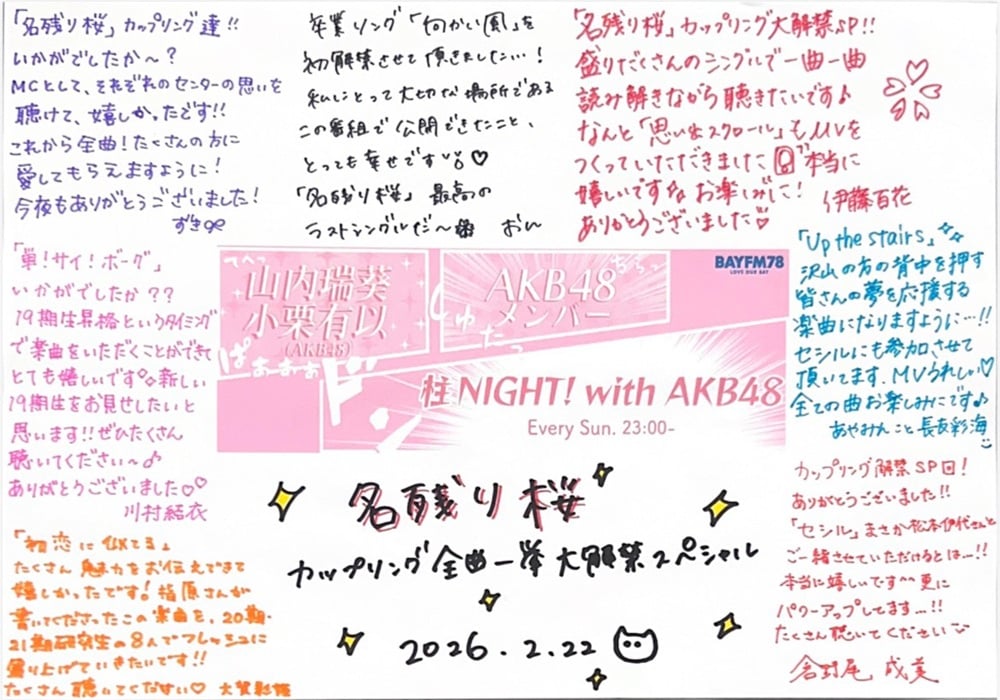 「名残り桜」カップリング達!!
いかがでしたか〜?
MCとして、それぞれのセンターの思いを
聴けて、嬉しかったです!!
これから全曲!たくさんの方に
愛してもらえますように!
今夜もありがとうございました!
ずき
卒業ソング「向かい風」を
初解禁させて頂きました…!
私にとって大切な場所である
この番組で公開できたこと、
とっても幸せです♡
「名残り桜」最高の
ラストシングルだ〜 おん
「名残り桜」カップリング大解禁SP!!
盛りだくさんのシングルで一曲一曲
読み解きながら聴きたいです♪
なんと「思い出スクロール」もMVを
つくっていただだきました 本当に
嬉しいですな お楽しみに!
ありがとうございました♡
伊藤百花
「単!サイ!ボーグ」
いかがでしたか??
19期生昇格というタイミング
で楽曲をいただくことができて
とても嬉しいです 新しい
19期生をお見せしたいと
思います!!ぜひたくさん
聴いてください〜♪
ありがとうございました♡
川村結衣
てへっ
山内瑞葵
小栗有以
(AKB48)
ぱぁぁぁぁ
AKB48
メンバー
ちらっ
しゅたっ
BAYFM78
LOVE OUR BAY
柱NIGHT! with AKB48
Every Sun. 23:00-
「Up the stairs」
沢山の方の背中を押す
皆さんの夢を応援する
楽曲になりますように…!!
セシルにも参加させて
頂いてます、MVうれしい♡
全ての曲お楽しみにです♪
あやみんこと長友彩海
「初恋に似てる」
たくさん魅力をお伝えできて
嬉しかったです!指原さんが
書いてくださったこの楽曲を、20期・
21期研究生の8人でフレッシュに
盛り上げていきたいです!!
たくさん聴いてください♡ 大賀彩姫
名残り桜
カップリング全曲一挙大解禁スペシャル
2026.2.22
カップリング解禁SP回!
ありがとうございました!!
「セシル」まさか松本伊代さんと
ご一緒させていただけるとは…!!
本当に嬉しいです^^ 更に
パワーアップしてます…!!
たくさん聴いてください
倉野尾 成美